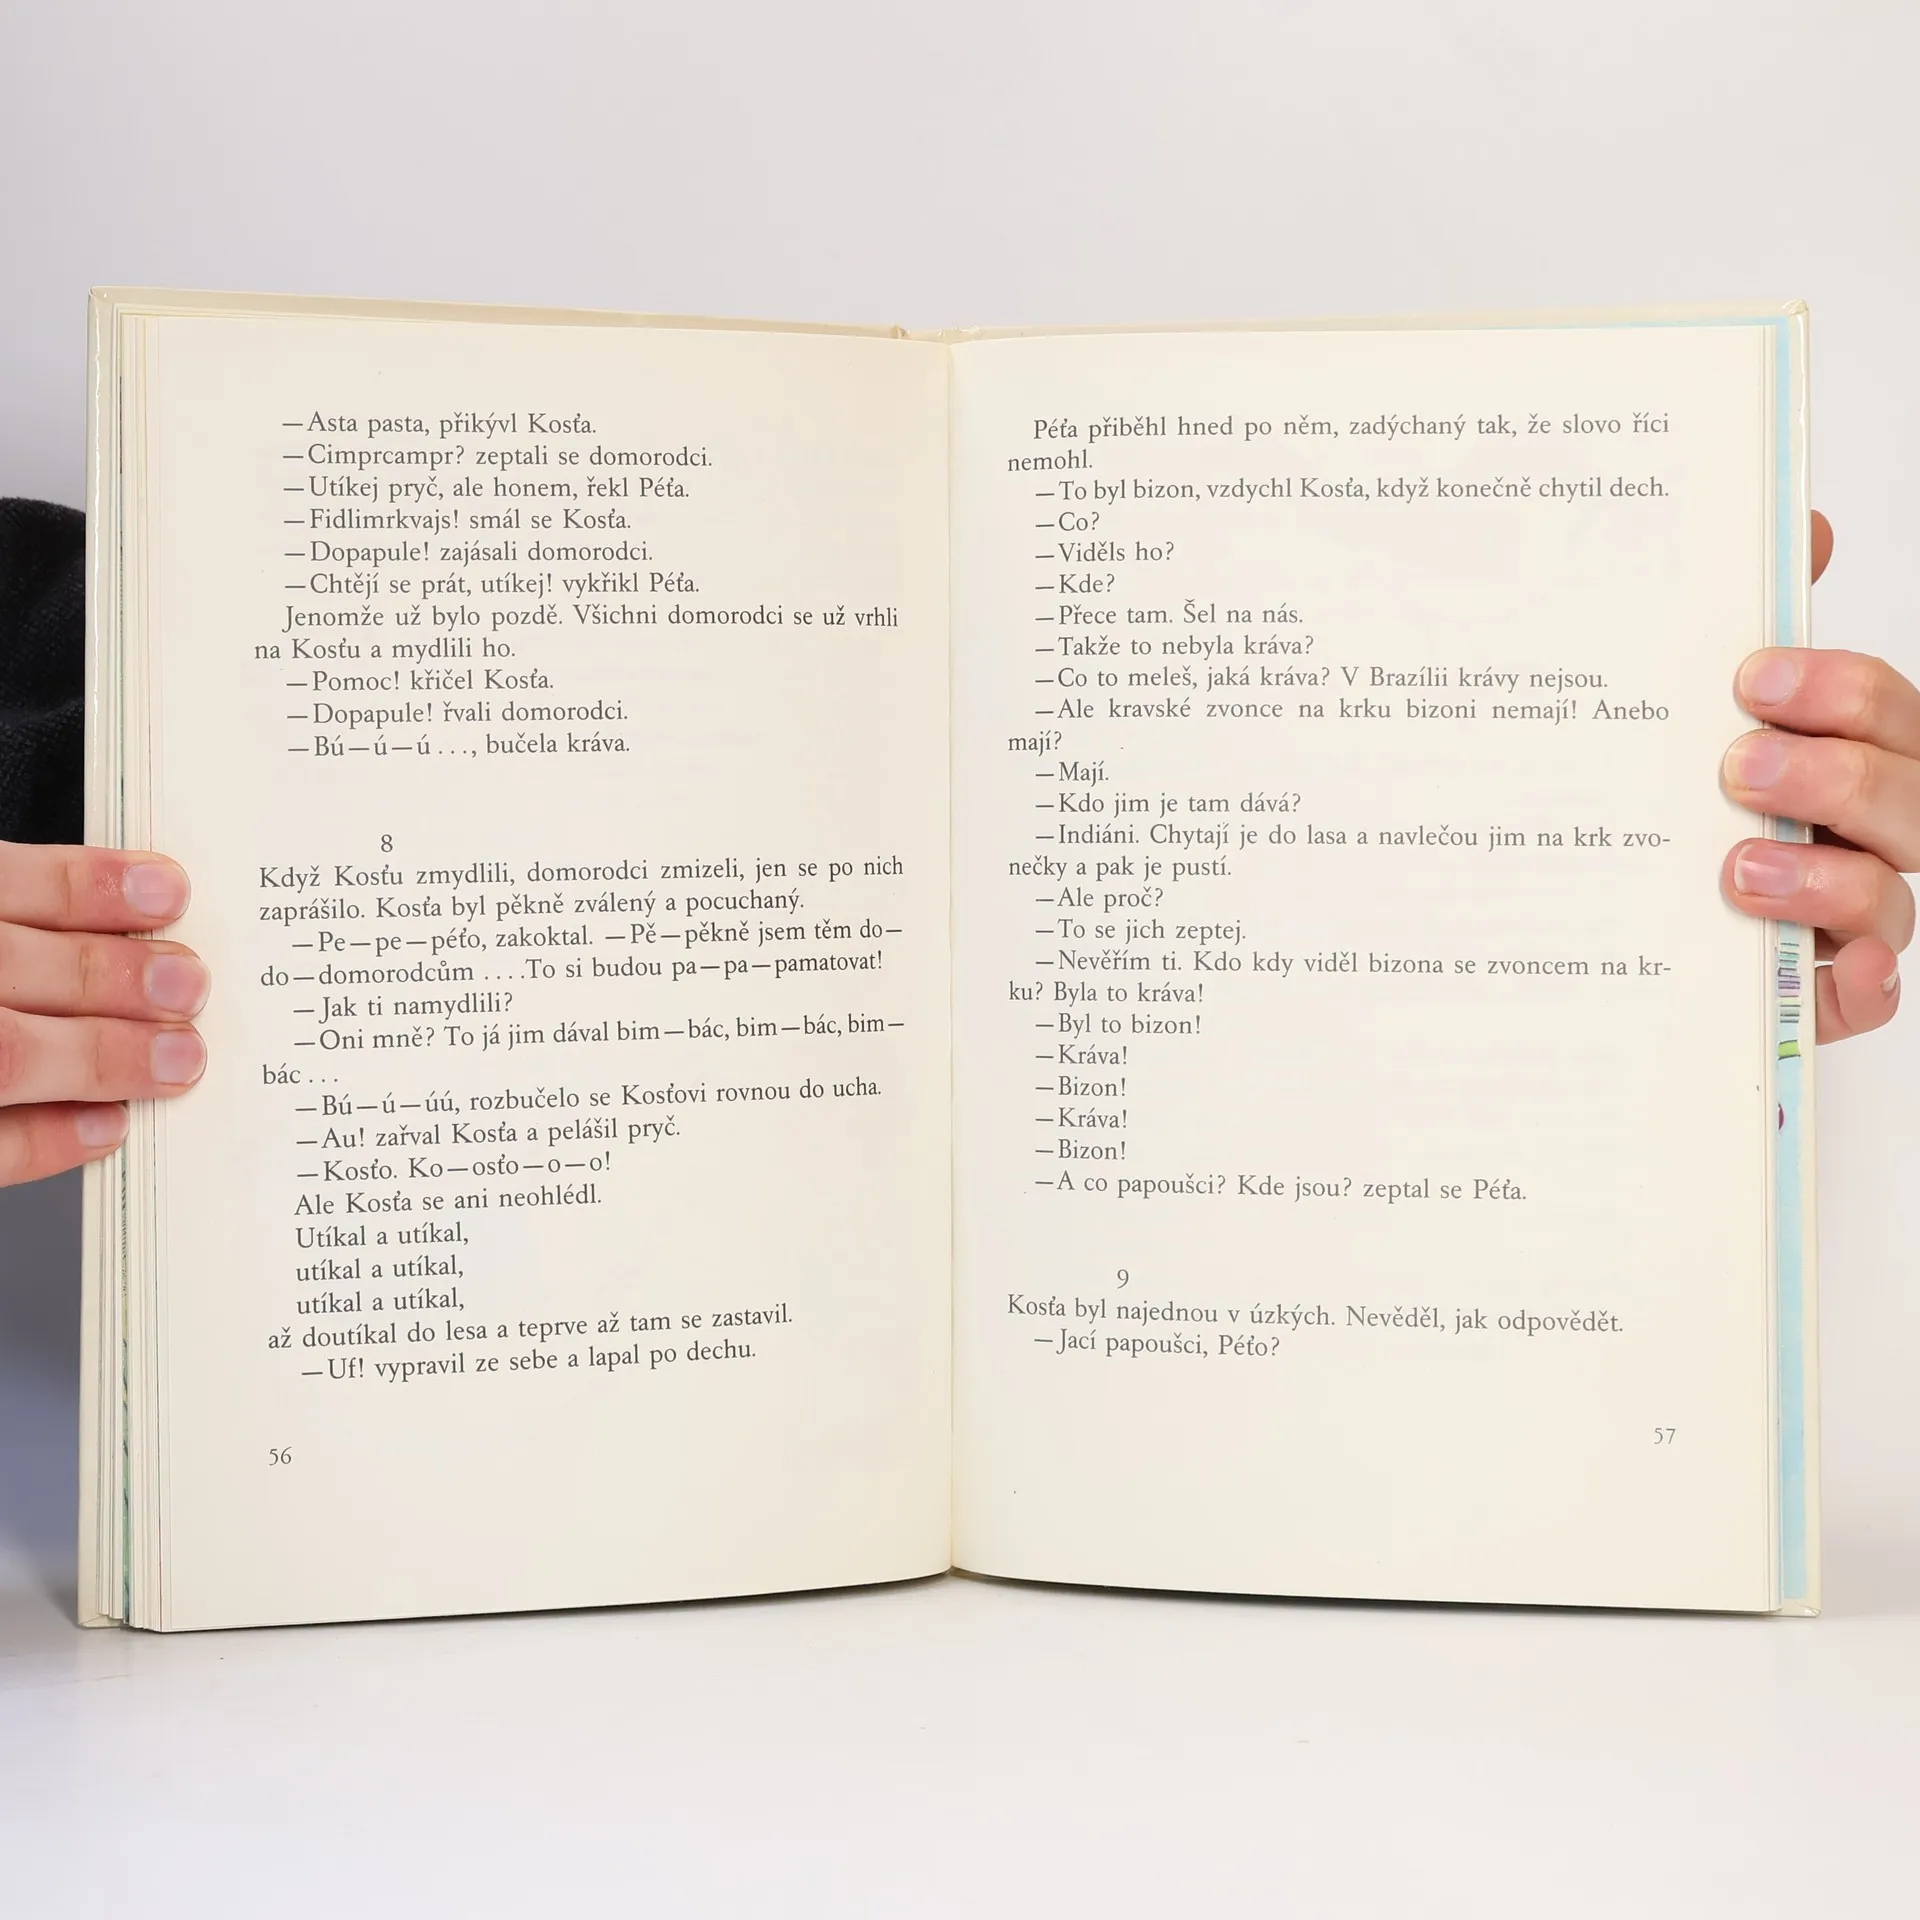 —Asta pasta, přikývl Kosťa.
—Cimprcampr? zeptali se domorodci.
—Utíkej pryč, ale honem, řekl Péťa.
—Fidlimrkvajs! smál se Kosťa.
—Dopapule! zajásali domorodci.
—Chtějí se prát, utíkej! vykřikl Péťa.
Jenomže už bylo pozdě. Všichni domorodci se už vrhli
na Kosťu a mydlili ho.
—Pomoc! křičel Kosťa.
—Dopapule! řvali domorodci.
—Bú—ú—ú..., bučela kráva.
8
Když Kosťu zmydlili, domorodci zmizeli, jen se po nich
zaprášilo. Kosťa byl pěkně zválený a pocuchaný.
—Pe—pe—péťo, zakoktal. —Pě—pěkně jsem těm do—
do—domorodcům ....To si budou pa—pa—pamatovat!
—Jak ti namydlili?
—Oni mně? To já jim dával bim—bác, bim—bác, bim—
bác...
—Bú—ú—úú, rozbučelo se Kosťovi rovnou do ucha.
—Au! zařval Kosťa a pelášil pryč.
—Kosťo. Ko—osťo—o—o!
Ale Kosťa se ani neohlédl.
Utíkal a utíkal,
utíkal a utíkal,
utíkal a utíkal,
až doutíkal do lesa a teprve až tam se zastavil.
—Uf! vypravil ze sebe a lapal po dechu.
56
Péťa přiběhl hned po něm, zadýchaný tak, že slovo říci
nemohl.
—To byl bizon, vzdychl Kosťa, když konečně chytil dech.
—Co?
—Viděls ho?
—Kde?
—Přece tam. Šel na nás.
—Takže to nebyla kráva?
—Co to meleš, jaká kráva? V Brazílii krávy nejsou.
—Ale kravské zvonce na krku bizoni nemají! Anebo
mají?
—Mají.
—Kdo jim je tam dává?
—Indiáni. Chytají je do lasa a navlečou jim na krk zvo-
nečky a pak je pustí.
—Ale proč?
—To se jich zeptej.
—Nevěřím ti. Kdo kdy viděl bizona se zvoncem na kr-
ku? Byla to kráva!
—Byl to bizon!
—Kráva!
—Bizon!
—Kráva!
—Bizon!
—A co papoušci? Kde jsou? zeptal se Péťa.
9
Kosťa byl najednou v úzkých. Nevěděl, jak odpovědět.
—Jací papoušci, Péťo?
57